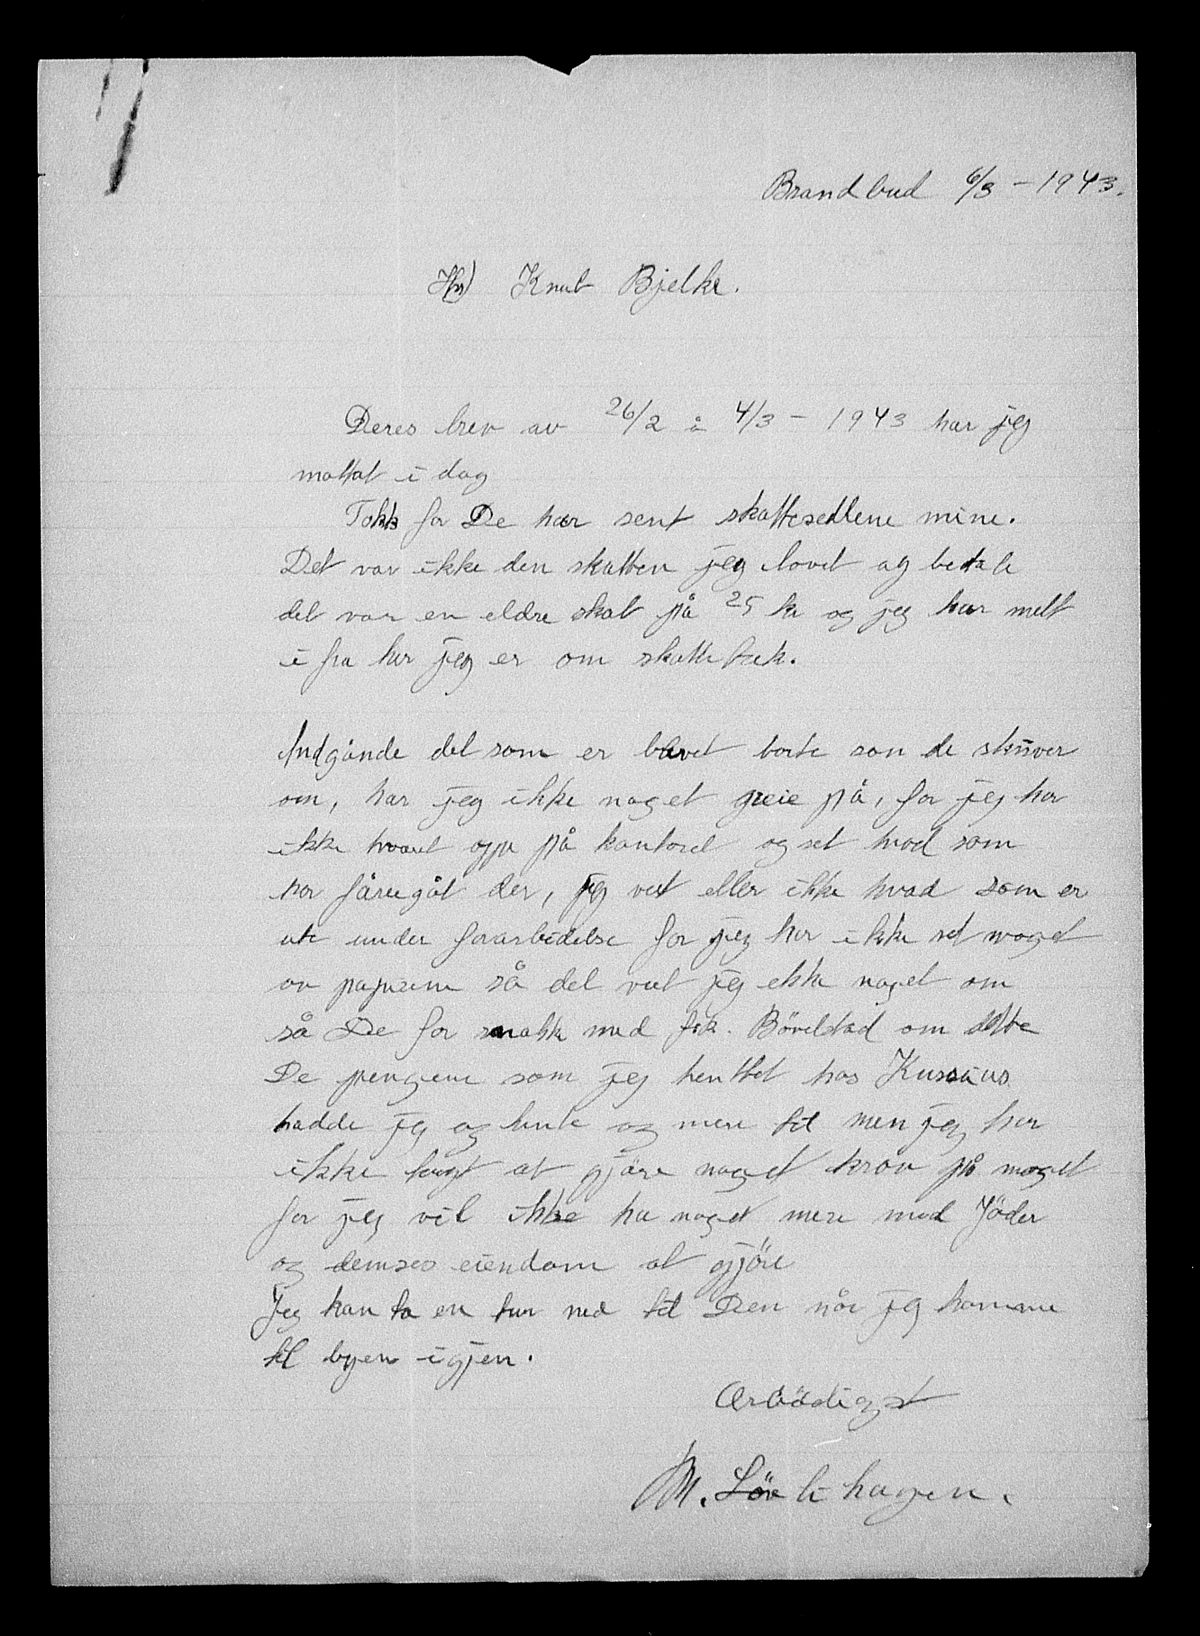 Brandbud 6/3 - 1943.
Hr) Knut Bjelke.
Deres brev av 26/2 å 4/3 - 1943 har jeg
mottat i dag
Takk for De har sent skattesedlene mine.
Det var ikke den skatten jeg lovet og betale
det var en eldre skat på 25 kr og jeg har melt
i fra her jeg er om skattetræk.
Andgånde det som er blevet borte som de skriver
om, har jeg ikke noget greie på, for jeg har
ikke været opp på kontoret og set hvad som
har føregåt der, jeg vet eller ikke hvad som er
ute under forarbeidelse for jeg har ikke set noget
av papirene så det vet jeg ekke noget om
så De får snakke med frk. Bövelstad om dette
De pengene som jeg henttet hos Kussius
hadde jeg og bruk og mere til men jeg har
ikke tengt at gjöre noget krav på noget
for jeg vil ikke ha noget mere med Jöder
og demses eiendom at gjöre
Jeg kan ta en tur ned til Dem når jeg komme
til byen igjen.
Ærbödigst
M. Lövlihagen.